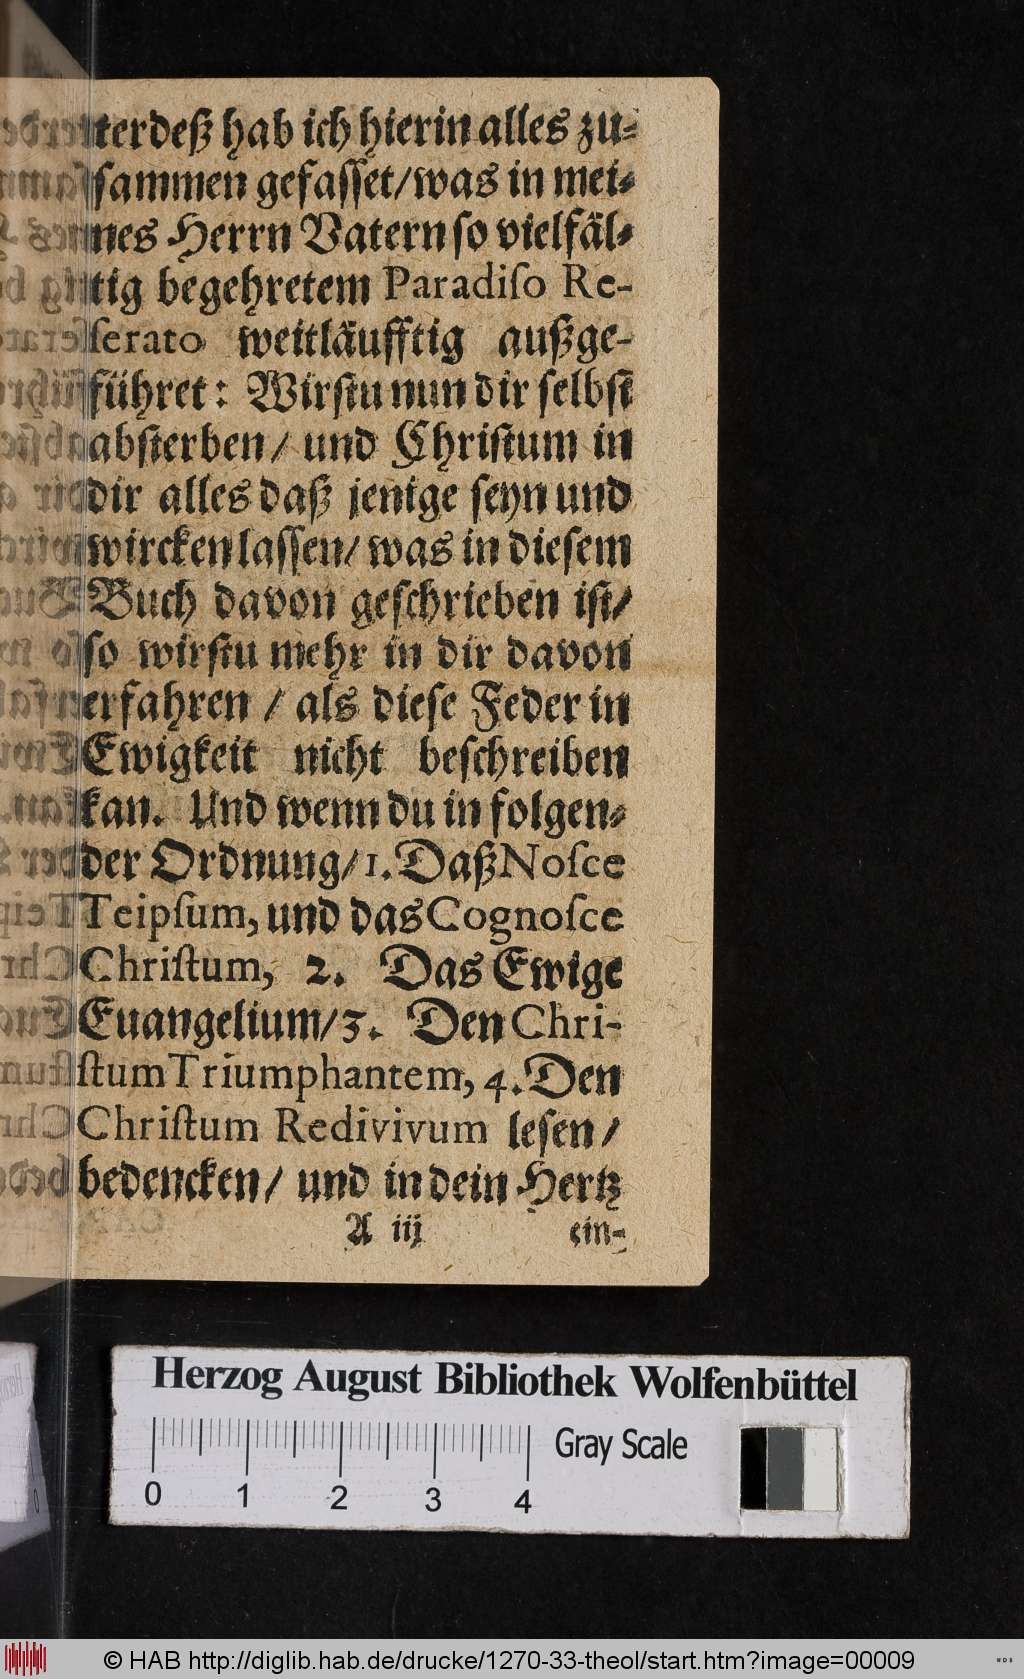 terdeß hab ich hierin alles zu-
sammen gefasset/was in mei-
nes Herrn Vatern so vielfäl-
tig begehretem Paradiſo Re-
ſerato weitläufftig außge-
führet: Wirstu nun dir selbst
absterben/ und Christum in
dir alles daß jenige seyn und
wircken lassen/ was in diesem
Buch davon geschrieben ist/
so wirstu mehr in dir davon
erfahren / als diese Feder in
Ewigkeit nicht beschreiben
kan. Und wenn du in folgen-
der Ordnung/1. Daß Noſce
Teipſum, und das Cognoſce
Chriſtum, 2. Das Ewige
Euangelium/3. Den Chri-
ſtum Triumphantem, 4. Den
Chriſtum Redivivum lesen/
bedencken/ und in dein Hertz
A iij ein-
Herzog August Bibliothek Wolfenbüttel
Gray Scale
0 1 2 3 4
© HAB http://diglib.hab.de/drucke/1270-33-theol/start.htm?image=00009